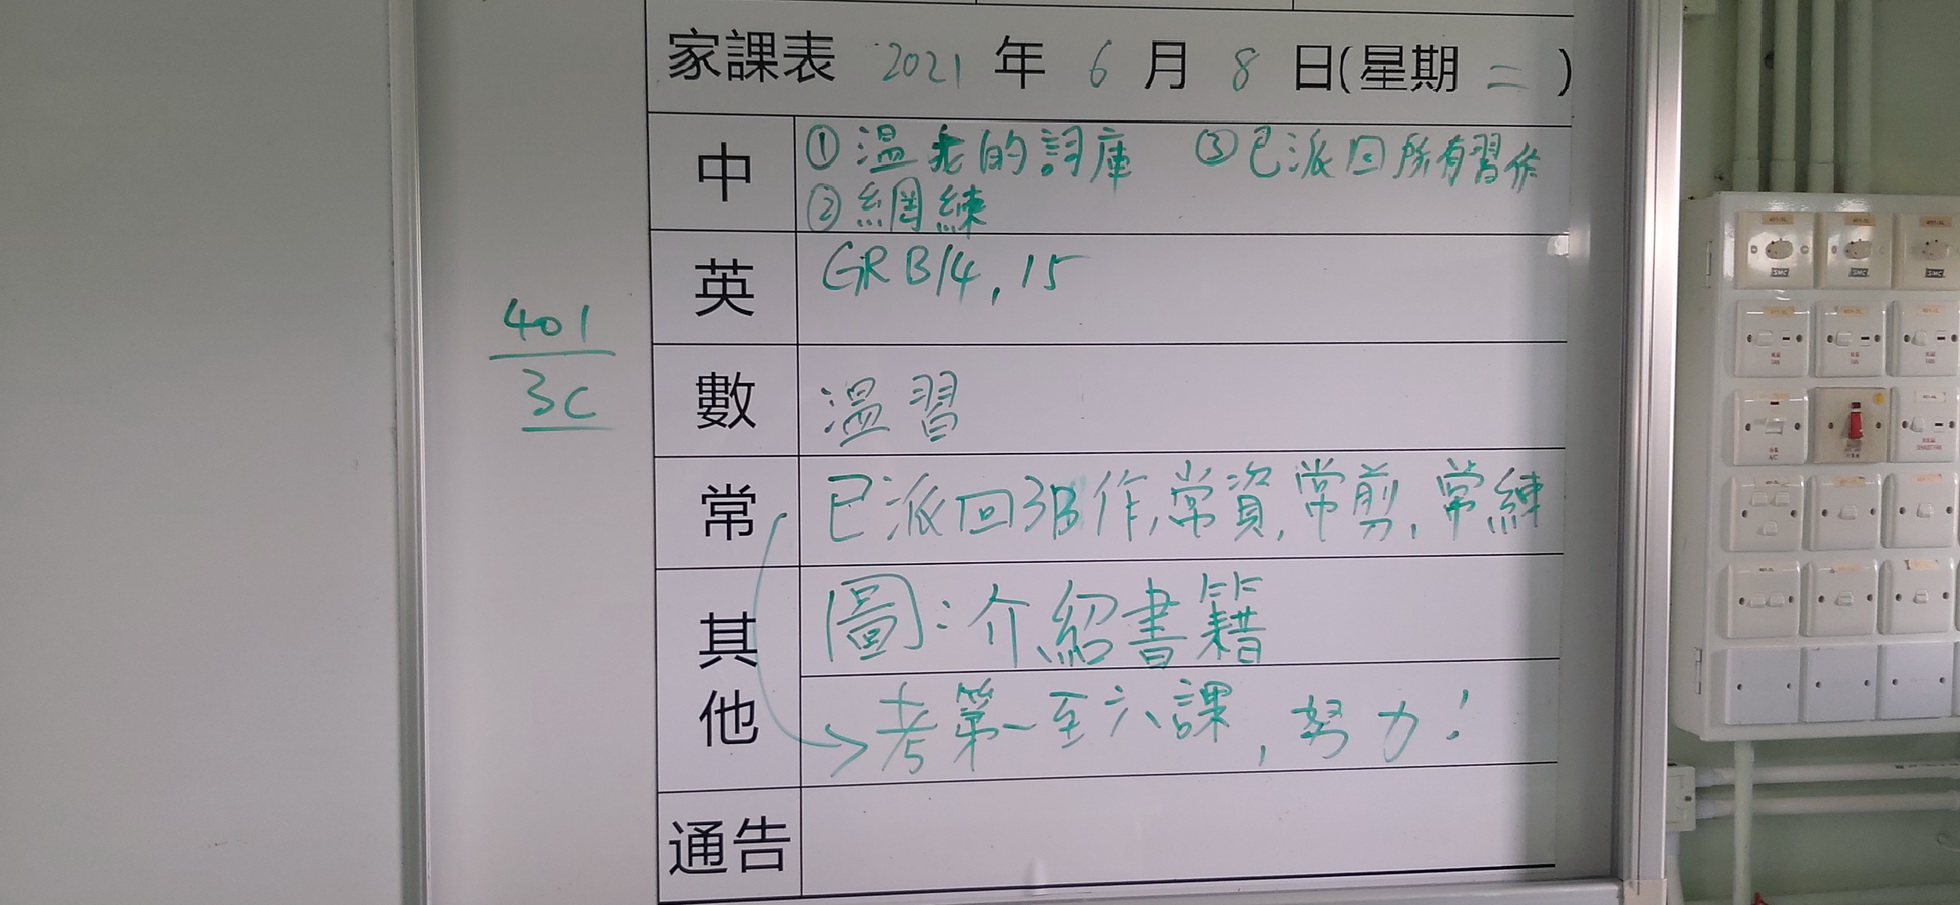 家課表 2021 年 6 月 8 日(星期 二 )
中
①溫 的詞庫 ③已派回所有習作
②網練
英
GRB14, 15
401
3C
數
溫習
常
已派回3B作,常資,常剪,常練
其他
圖:介紹書籍
→考第一至六課,努力!
通告